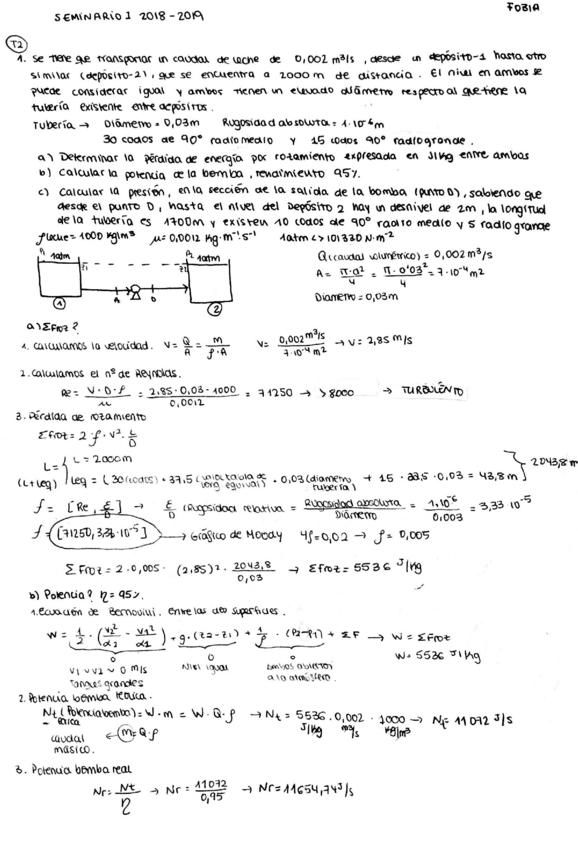 SEMINARIO 1 2018-2019
FOBIA
T2
1. Se tiene que transportar un caudal de leche de 0,002 m³/s, desde un depósito-1 hasta otro
similar (depósito-2), que se encuentra a 2000m de distancia. El nivel en ambos se
puede considerar igual y ambos tienen un elevado diámetro respecto al que tiene la
tubería existente entre depósitos.
Tubería → Diámetro = 0,03m Rugosidad absoluta = 1·10⁻⁶m
30 codos de 90° radio medio y 15 codos 90° radio grande.
a) Determinar la pérdida de energía por rozamiento expresada en J/Kg entre ambos
b) Calcular la potencia de la bomba, rendimiento 95%.
c) Calcular la presión, en la sección de la salida de la bomba (punto D), sabiendo que
desde el punto D, hasta el nivel del Depósito 2 hay un desnivel de 2m, la longitud
de la tubería es 1700m y existen 10 codos de 90° radio medio y 5 radio grande
ρleche = 1000 kg/m³ μ = 0,0012 Kg·m⁻¹·s⁻¹ 1atm <> 101330 N·m⁻²
P1 1atm Z1 A D Z2 P2 1atm
1 2
Q (caudal volumétrico) = 0,002 m³/s
A = π·d²/4 = π·0'03²/4 = 7·10⁻⁴ m²
Diámetro = 0,03m
a) ΣFroz?
1. Calculamos la velocidad. V = Q/A = m/ρ·A V = 0,002 m³/s / 7·10⁻⁴ m² → V = 2,85 m/s
2. Calculamos el nº de Reynolds.
Re = V·D·ρ/μ = 2,85·0,03·1000/0,0012 = 71250 → > 8000 → TURBULENTO
3. Pérdida de rozamiento
ΣFroz = 2·f·v²·L/D
L = L = 2000m
(L+Leq) Leq = (30 (codos) · 37,5 (valor tabla de long equival) · 0,03 (diametro tubería) + 15 · 22,5 · 0,03 = 43,8m 2043,8m
f = [Re, ε/D] → ε/D (Rugosidad relativa = Rugosidad absoluta/Diámetro = 1·10⁻⁶/0,003 = 3,33·10⁻⁵
f = [71250, 3,33·10⁻⁵] → Gráfico de Moody 4f = 0,02 → f = 0,005
ΣFroz = 2·0,005·(2,85)²·2043,8/0,03 → ΣFroz = 5536 J/Kg
b) Potencia? η = 95%.
1. Ecuación de Bernouilli. Entre las dos superficies.
W = 1/2·(V2²/α2 − V1²/α1) + g·(Z2−Z1) + 1/ρ·(P2−P1) + ΣF → W = ΣFroz
0 0 0 W = 5536 J/Kg
V1 ∽ V2 ∽ 0 m/s Nivel igual ambos abiertos
Tanques grandes a la atmósfera.
2. Potencia bomba teórica.
Nt (Potencia bomba teórica) = W·m = W·Q·ρ → Nt = 5536·0,002·1000 → Nt = 11072 J/s
J/Kg m³/s kg/m³
caudal másico. ← m = Q·ρ
3. Potencia bomba real
Nr = Nt/η → Nr = 11072/0,95 → Nr = 11654,74 J/s